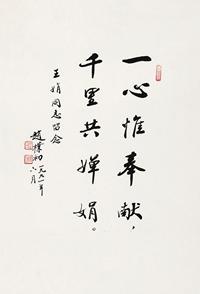 一心惟奉献，
千里共婵娟。
王娟同志留念
赵朴初
一九九一年
六月